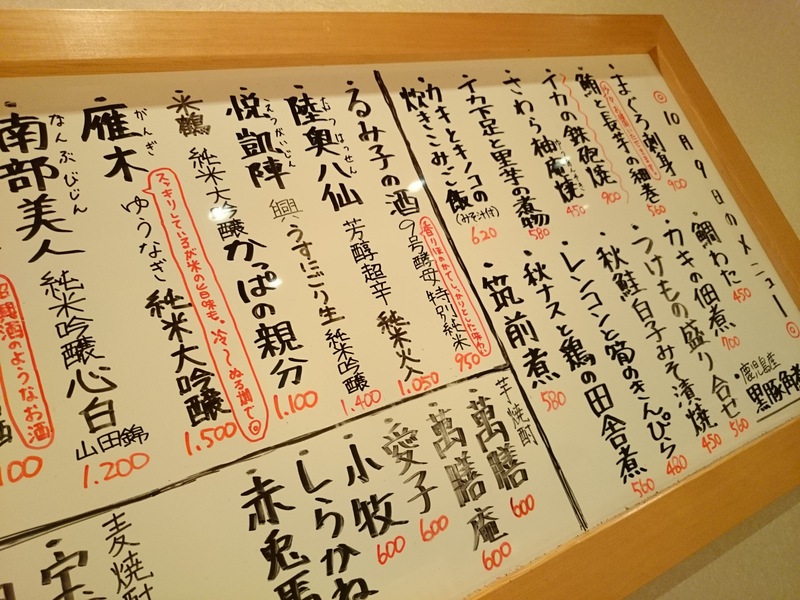 ◎10月9日のメニュー◎
まぐろ刺身 900
鮪と長芋の細巻 560
イカの鉄砲焼 900
さわら柚庵焼 450
イカ下足と里芋の煮物 580
カキとキノコの
炊きこみご飯(みそ汁付) 620
鯛わた 450
カキの佃煮 700
つけもの盛り合せ 560
秋鮭白子みそ漬焼 450
レンコンと筍のきんぴら 480
秋ナスと鶏の田舎煮 560
筑前煮 580
鹿児島産
黒豚角煮
るみ子の酒 9号酵母 特別純米 950
香りほのかでしっかりとした味わい
陸奥八仙 芳醇超辛 純米火入 1.050
むつはっせん
悦凱陣 興 うすにごり生 純米吟醸 1.400
えつがいじん
米鶴 純米大吟醸 かっぱの親分 1.100
雁木 ゆうなぎ 純米大吟醸 1.500
がんぎ
スッキリしているが米の旨味も、冷〜ぬる燗で。◎
南部美人 純米吟醸 心白 山田錦 1.200
なんぶびじん
酒のようなお酒
芋焼酎
萬膳 600
萬膳庵 600
愛子 600
小牧 600
しらかね
赤兎馬
麦焼酎